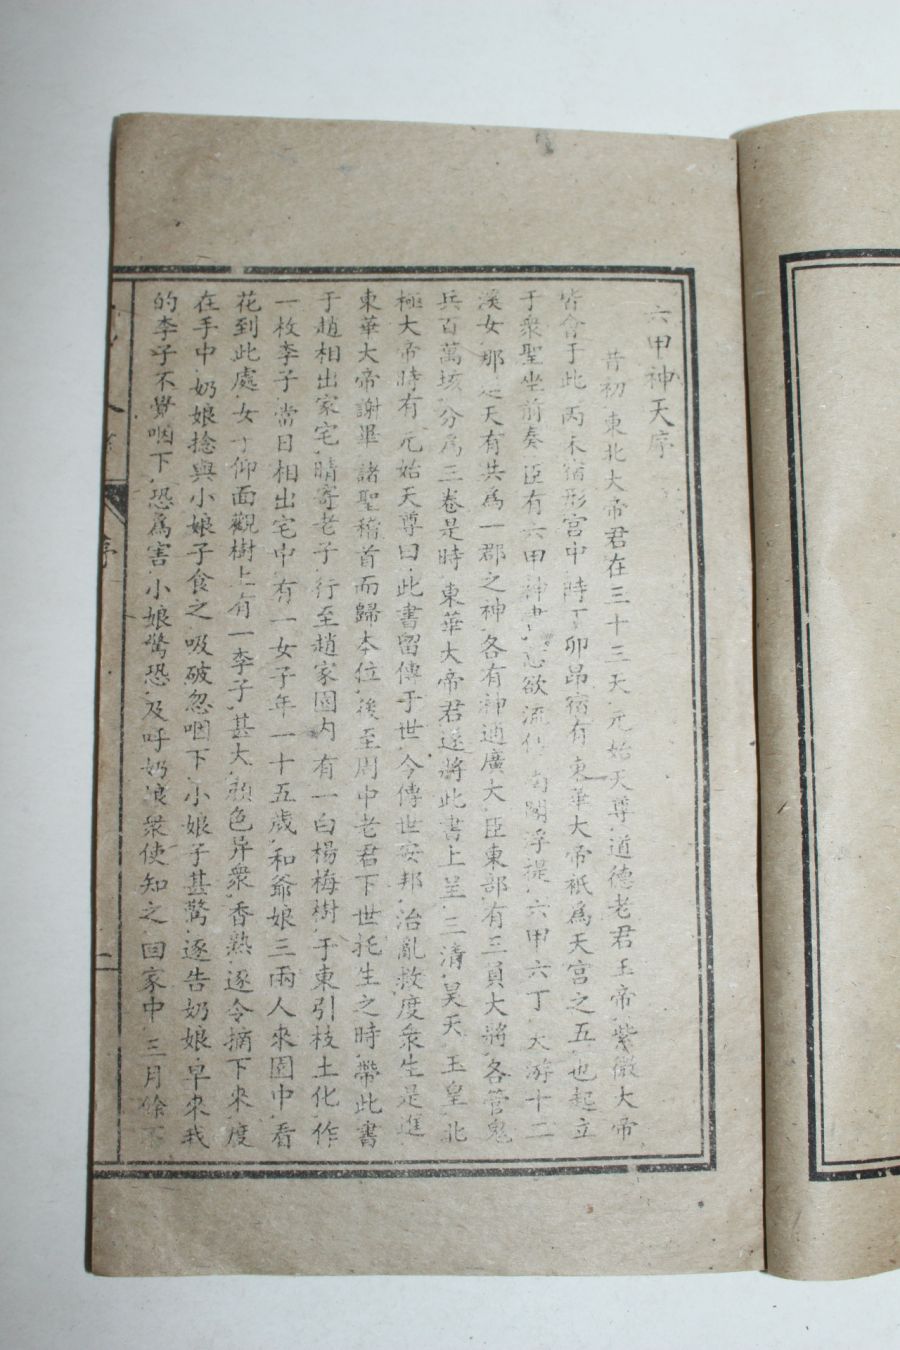 六甲神天序
昔初東北大帝君在三十三天元始天尊道德老君玉帝紫微大帝
皆會于此丙木宿形宫中時丁卯昂宿有東華大帝祇爲天宫之五也起立
于衆聖坐前奏臣有六甲神書欲流閻浮提六甲六丁大游十二
溪女那延天有共爲一郡之神各有神通廣大臣東部有三員大將各管鬼
兵百萬垓分爲三卷是時東華大帝君遂將此書上呈三清昊天玉皇北
極大帝時有元始天尊曰此書留傳于世今傳世安邦治亂救度衆生是進
東華大帝謝畢諸聖稽首而歸本位後至周中老君下世托生之時帶此書
于趙相出家宅晴寄老子行至趙家園内有一白楊梅樹于東引枝土化作
一枚李子當日相出宅中有一女子年一十五歲和爺娘三兩人來園中看
花到此處女子仰面觀樹上有一李子甚大顔色异衆香熟逐令摘下來度
在手中奶娘捻與小娘子食之吸破忽咽下小娘子甚驚逐告奶娘早來我
的李子不覺咽下恐爲害小娘驚恐及吁奶娘衆使知之回家中三月餘不
序
二